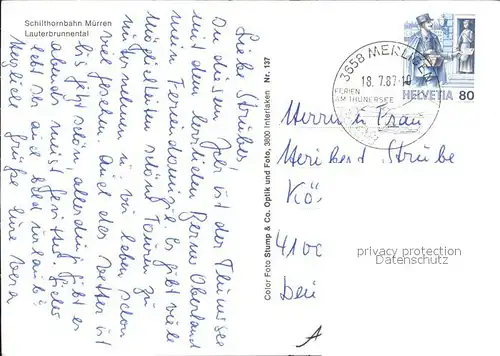 Schilthornbahn Mürren
Lauterbrunnental
Liebe Strübes!
In diesem Jahr ist der Thunersee
mit dem herrlichen Berner Oberland
mein Feriendomizil. Es gibt viele
Möglichkeiten schöne Touren zu
unternehmen u. wir haben schon
viel gesehen. Auch das Wetter ist
bis jetzt schön allerdings gibt es
abends meist Gewitter. Sicher
habt ihr auch bald Urlaub?
Herzliche Grüße Eure Vera
Color Foto Stump & Co. Optik und Foto, 3800 Interlaken Nr. 137
3658 MERLIGEN
18.7.87-10
FERIEN
AM THUNERSEE
HELVETIA 80
Herrn u. Frau
Heribert Strübe
Kö
4100
privacy protection
Datenschutz